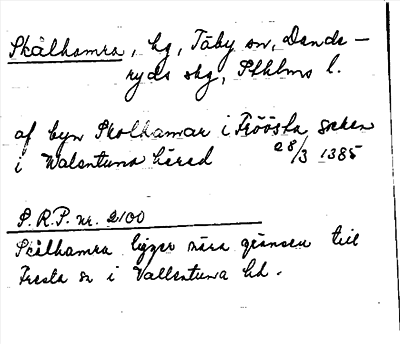 Skålhamra, hg, Täby sn, Dande-
ryds skg, Sthlms l.
af byn Skolhamar i Fröösta socken
i Walentuna härad 28/3 1385
S.R.P. nr. 2100
Skålhamra ligger nära gränsen till
Fresta sn i Vallentuna hd.